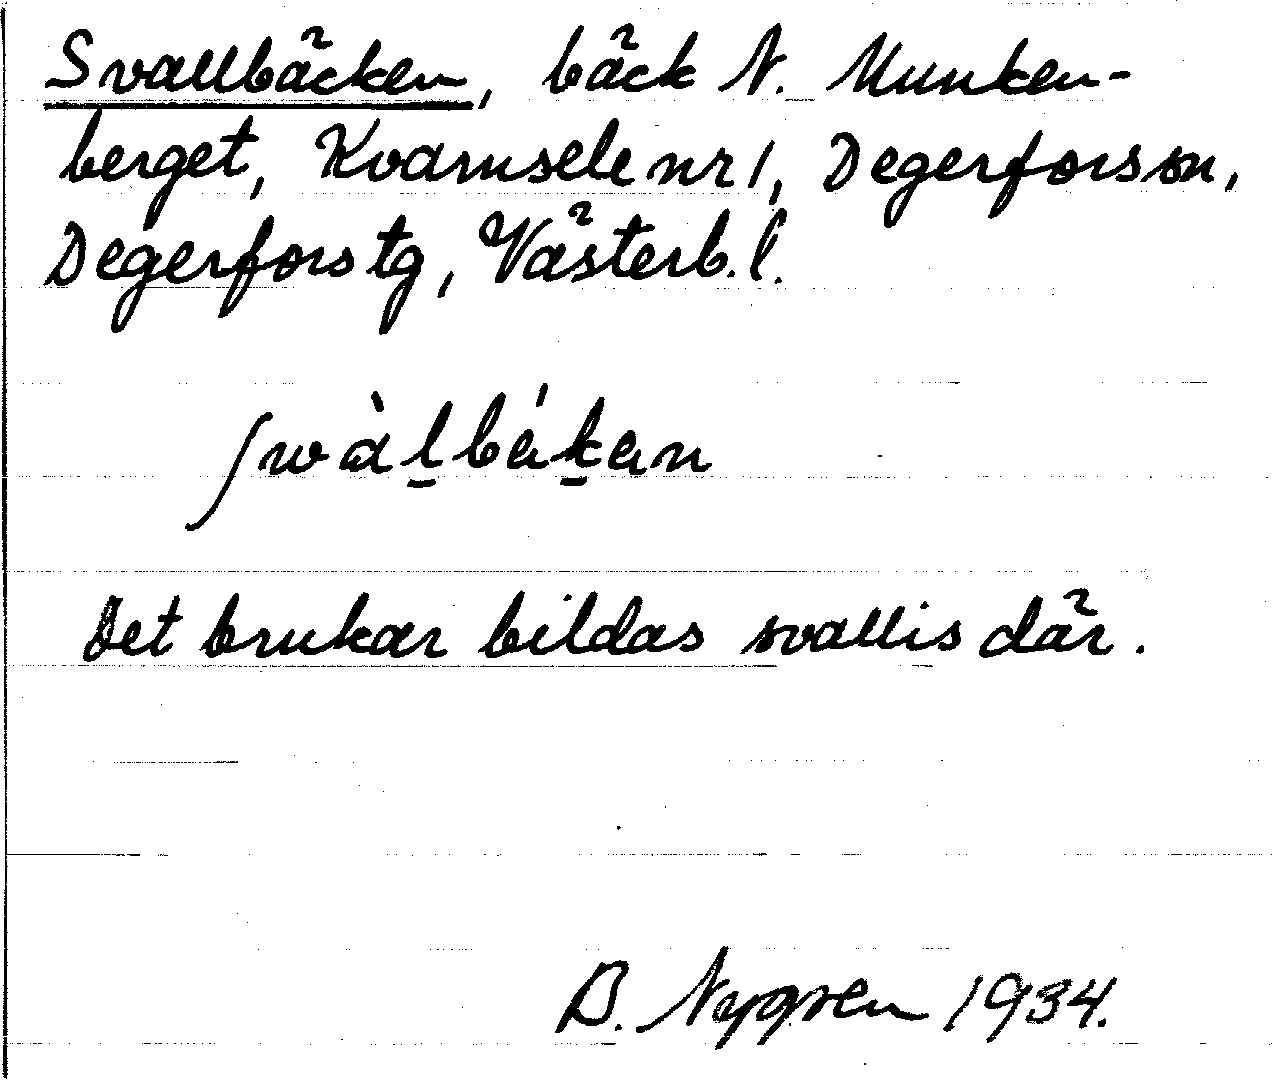 Svallbäcken, bäck N. Munken-
berget, Kvarnsele nr 1, Degerfors sn,
Degerfors tg, Västerb. l.
ʃwàl̠bák̠an
Det brukar bildas svallis där.
B. Nygren 1934.